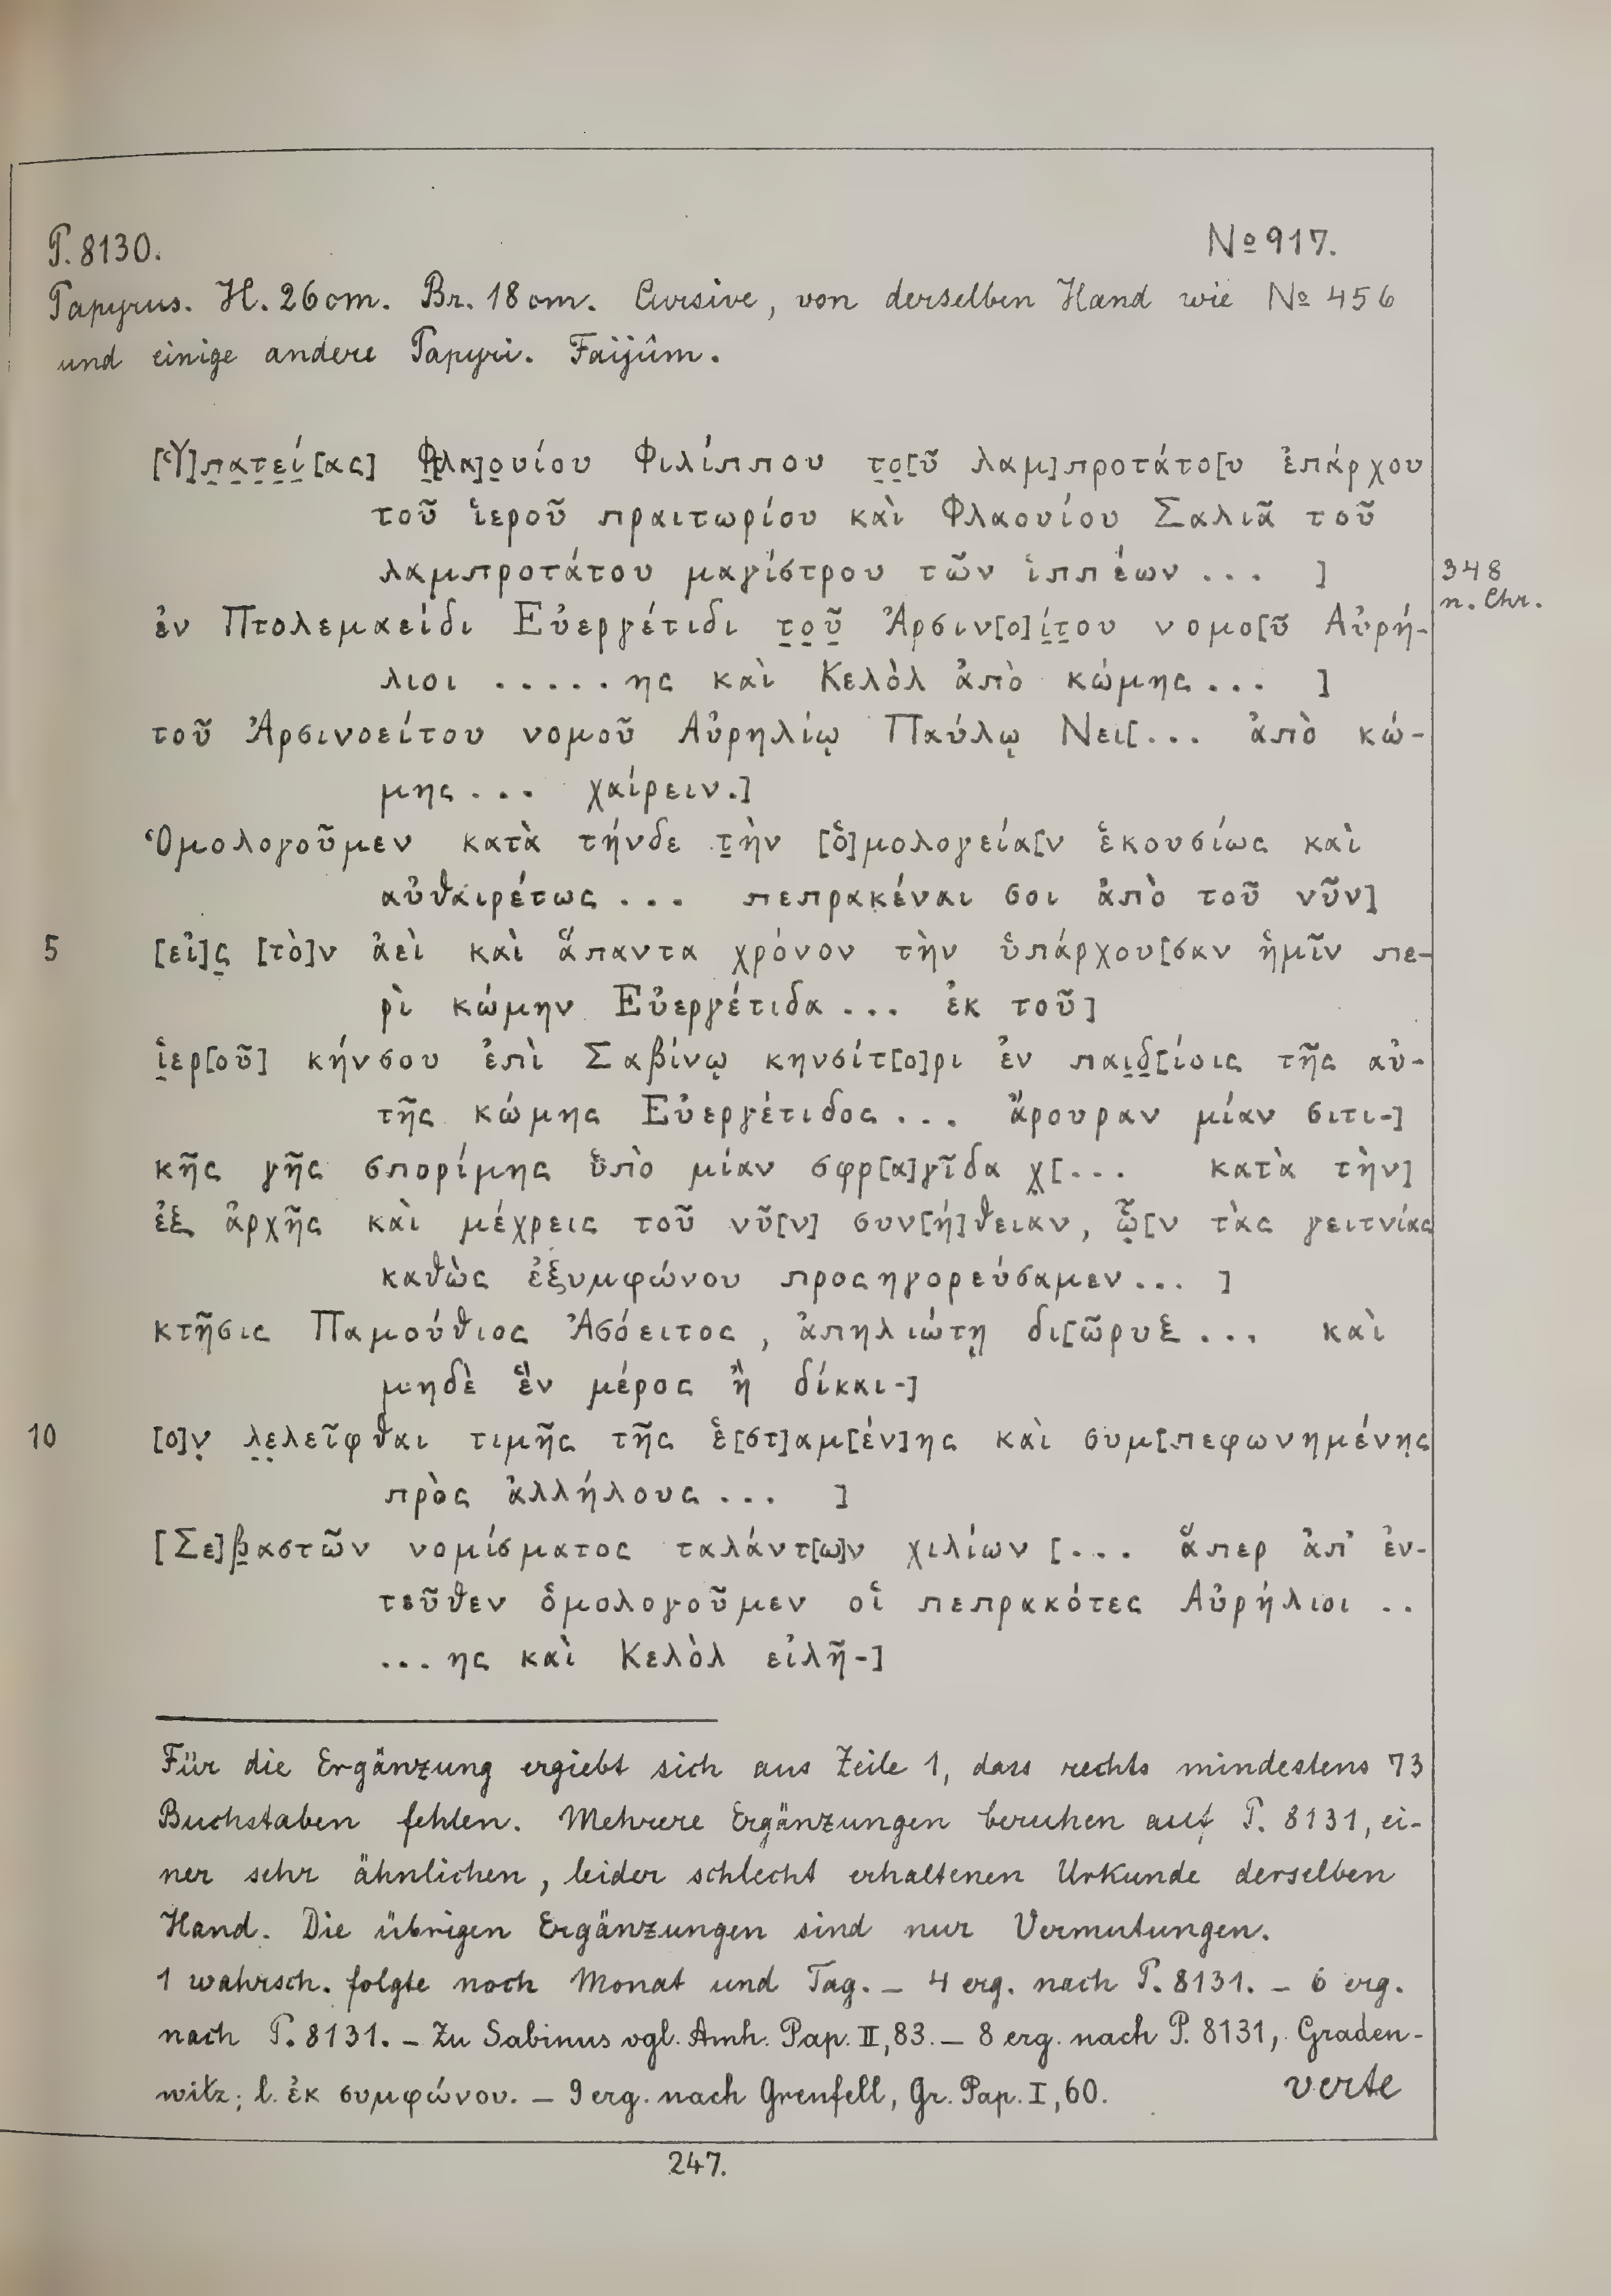 P. 8130. № 917.
Papyrus. H. 26 cm. Br. 18 cm. Cursive, von derselben Hand wie № 456
und einige andere Papyri. Faijûm.
[Ὑ]π̣ạτ̣ẹί̣[ας] Φ̣[λα]ọυίου Φιλίππου τ̣ọ[ῦ λαμ]προτάτο[υ ἐπάρχου
τοῦ ἱεροῦ πραιτωρίου καὶ Φλαουίου Σαλιᾶ τοῦ
λαμπροτάτου μαγίστρου τῶν ἱππέων ... ]
348
n. Chr.
ἐν Πτολεμαείδι Εὐεργέτιδι τ̣ọῦ̣ Ἀρσιν[ο]ί̣τ̣ου νομο[ῦ Αὐρή-
λιοι .....ης καὶ Κελὸλ ἀπὸ κώμης ... ]
τοῦ Ἀρσινοείτου νομοῦ Αὐρηλίῳ Παύλῳ Νει[... ἀπὸ κώ-
μης ... χαίρειν.]
Ὁμολογοῦμεν κατὰ τήνδε τ̣ὴν [ὁ]μολογεία[ν ἑκουσίως καὶ
αὐθαιρέτως ... πεπρακέναι σοι ἀπὸ τοῦ νῦν]
5 [εἰ]ς̣ [τὸ]ν ἀεὶ καὶ ἅπαντα χρόνον τὴν ὑπάρχου[σαν ἡμῖν πε-
ρὶ κώμην Εὐεργέτιδα ... ἐκ τοῦ]
ἱ̣ερ[οῦ] κήνσου ἐπὶ Σαβίνῳ κηνσίτ[ο]ρι ἐν παι̣δ̣[ίοις τῆς αὐ-
τῆς κώμης Εὐεργέτιδος ... ἄρουραν μίαν σιτι-]
κῆς γῆς σπορίμης ὑπὸ μίαν σφρ[α]γῖδα χ̣[... κατὰ τὴν]
ἐξ ἀρχῆς καὶ μέχρεις τοῦ νῦ[ν] συν[ή]θειαν, ὧ̣[ν τὰς γειτνίας
καθὼς ἐξυμφώνου προςηγορεύσαμεν ... ]
κτῆσις Παμούθιος Ἀσόειτος, ἀπηλιώτῃ δι[ῶρυξ ... καὶ
μηδὲ ἓν μέρος ἢ δίκαι-]
10 [ο]ν̣ λ̣ẹλεῖφθαι τιμῆς τῆς ἑ[στ]αμ[έν]ης καὶ συμ[πεφωνημένης
πρὸς ἀλλήλους ... ]
[Σε]β̣αστῶν νομίσματος ταλάντ[ω]ν χιλίων [... ἅπερ ἀπ' ἐν-
τεῦθεν ὁμολογοῦμεν οἱ πεπρακότες Αὐρήλιοι ..
...ης καὶ Κελὸλ εἰλῆ-]
Für die Ergänzung ergiebt sich aus Zeile 1, dass rechts mindestens 73
Buchstaben fehlen. Mehrere Ergänzungen beruhen auf P. 8131, ei-
ner sehr ähnlichen, leider schlecht erhaltenen Urkunde derselben
Hand. Die übrigen Ergänzungen sind nur Vermutungen.
1 wahrsch. folgte noch Monat und Tag. – 4 erg. nach P. 8131. – 6 erg.
nach P. 8131. – Zu Sabinus vgl. Amh. Pap. II, 83. – 8 erg. nach P. 8131, Graden-
witz; l. ἐκ συμφώνου. – 9 erg. nach Grenfell, Gr. Pap. I, 60. verte
247.